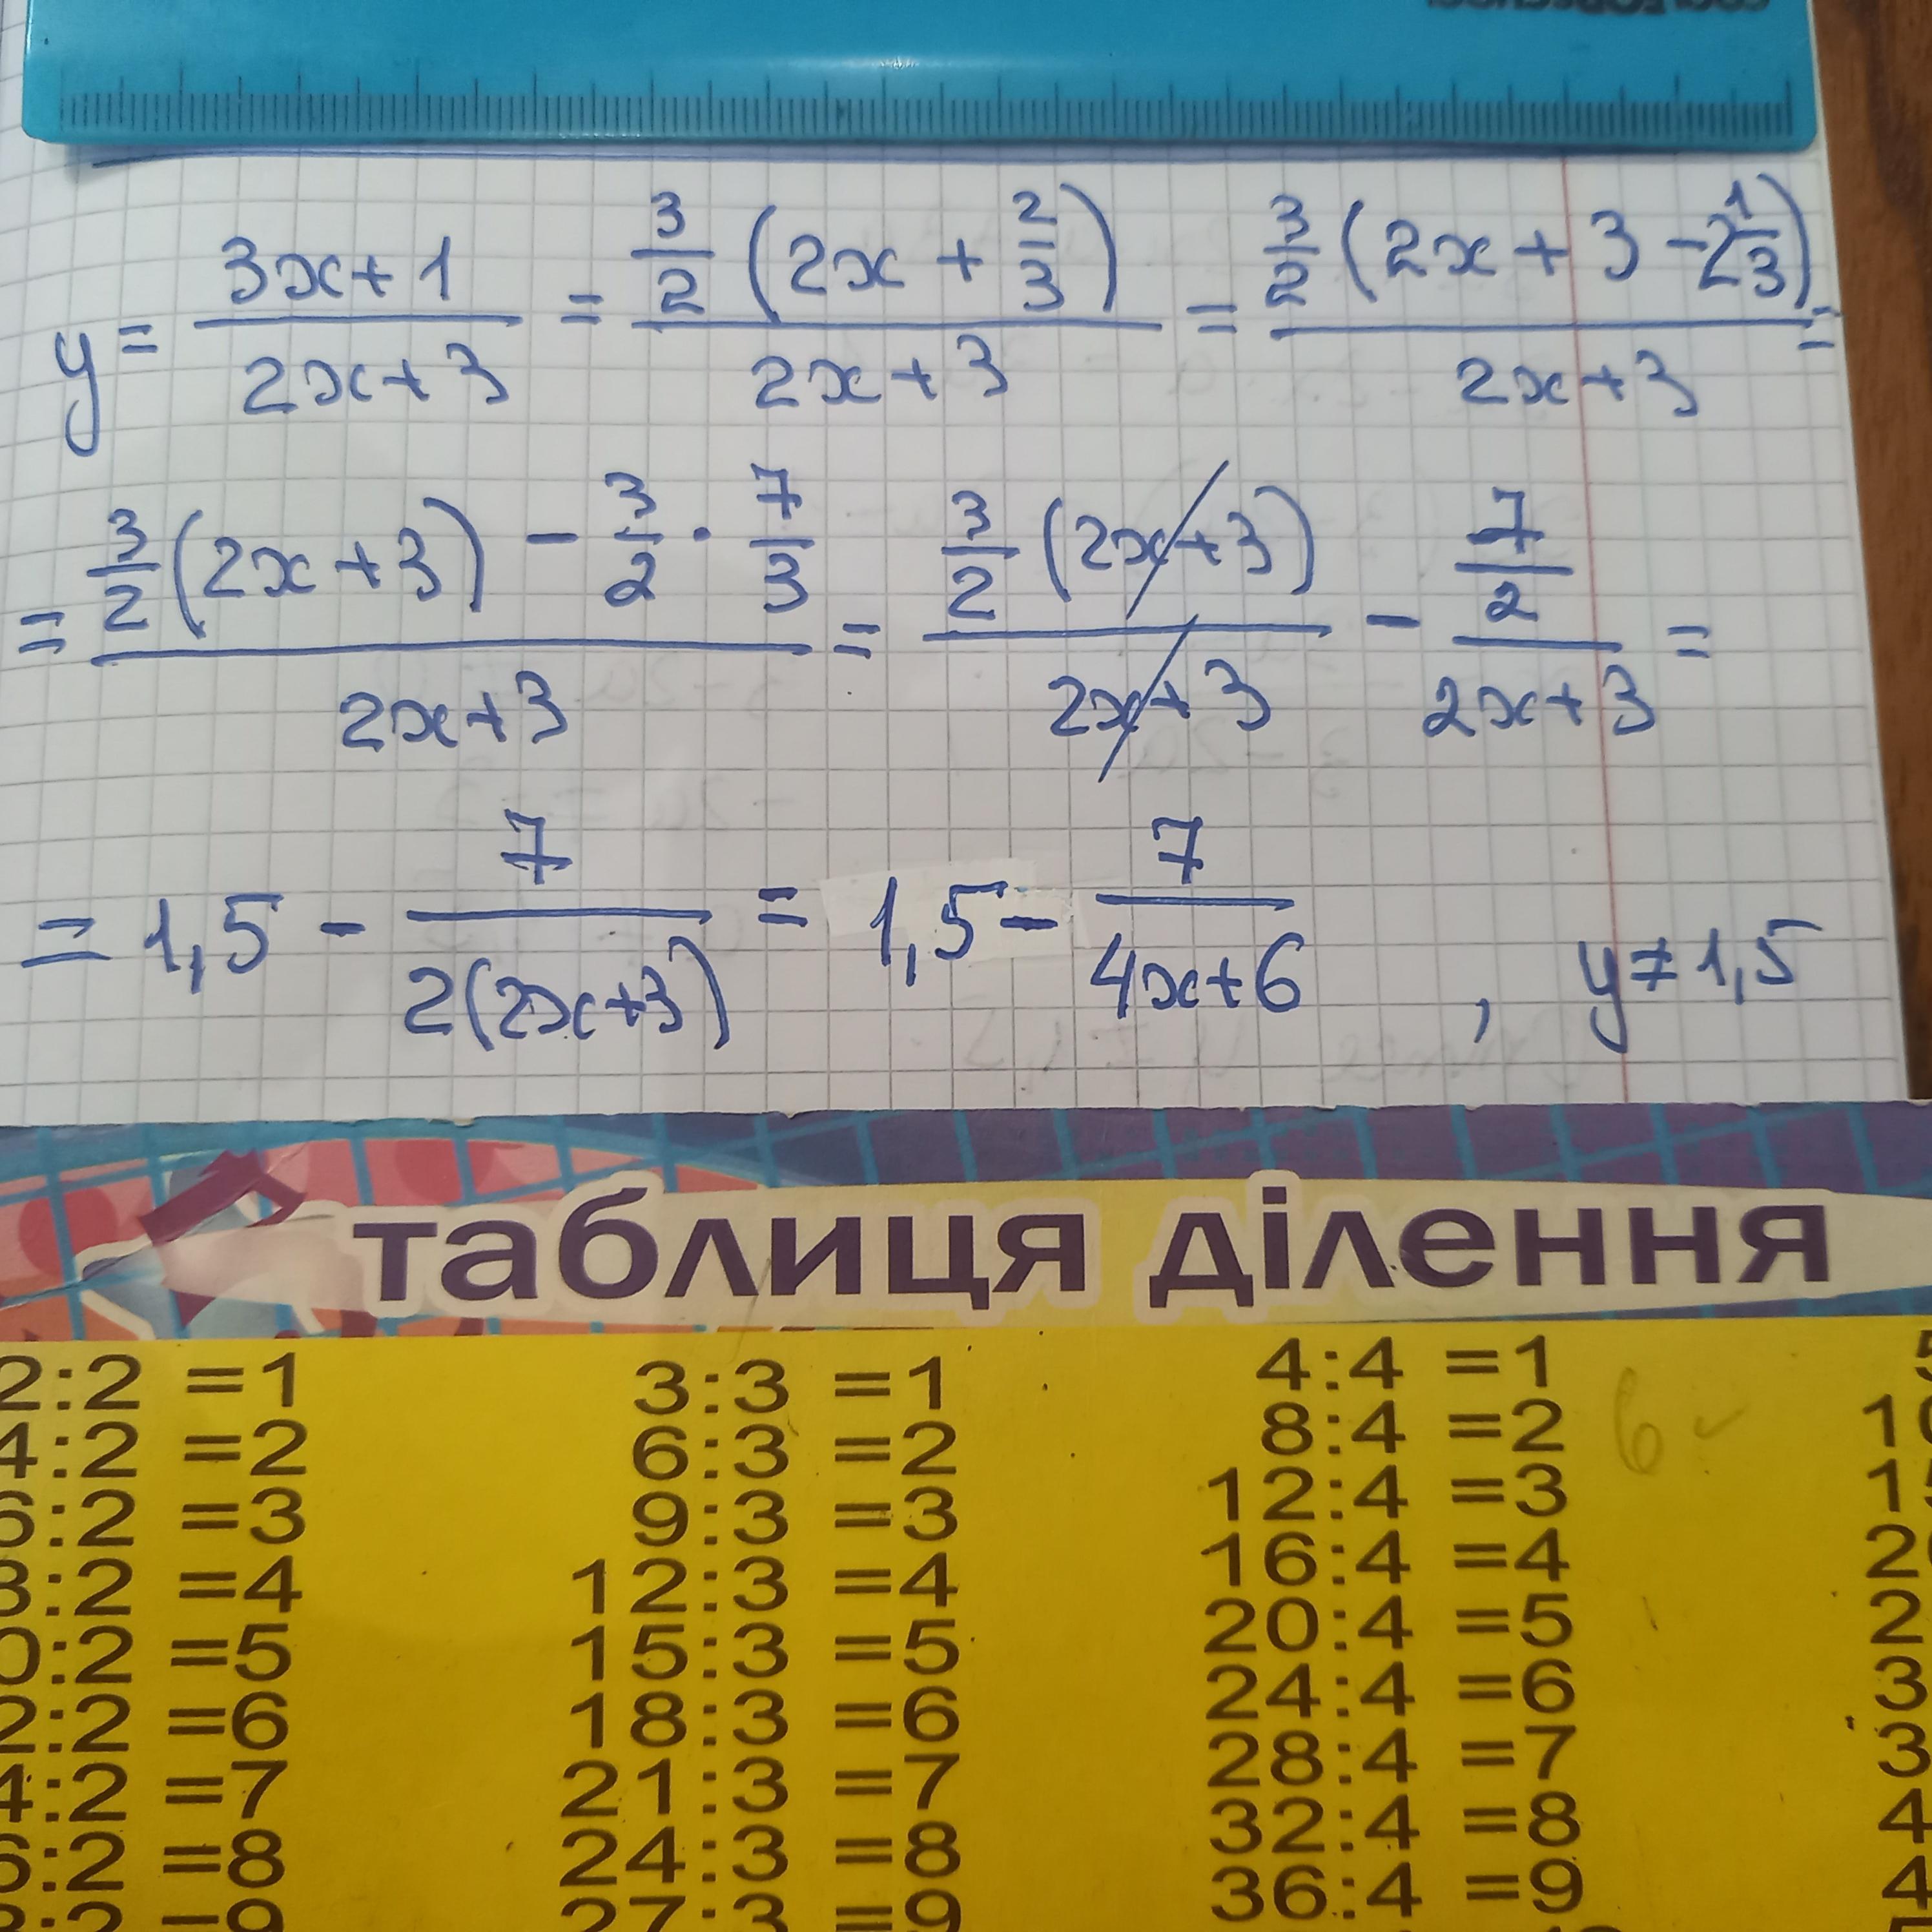 y = (3x+1)/(2x+3) = (3/2 (2x + 2/3))/(2x+3) = (3/2 (2x + 3 - 2 1/3))/(2x+3) =
= (3/2 (2x+3) - 3/2 · 7/3)/(2x+3) = (3/2 (2x+3))/(2x+3) - (7/2)/(2x+3) =
= 1,5 - 7/(2(2x+3)) = 1,5 - 7/(4x+6) , y ≠ 1,5
таблиця ділення
2:2 =1 3:3 =1 4:4 =1
4:2 =2 6:3 =2 8:4 =2 6
6:2 =3 9:3 =3 12:4 =3
8:2 =4 12:3 =4 16:4 =4
0:2 =5 15:3 =5 20:4 =5
2:2 =6 18:3 =6 24:4 =6
4:2 =7 21:3 =7 28:4 =7
6:2 =8 24:3 =8 32:4 =8
8:2 =9 27:3 =9 36:4 =9